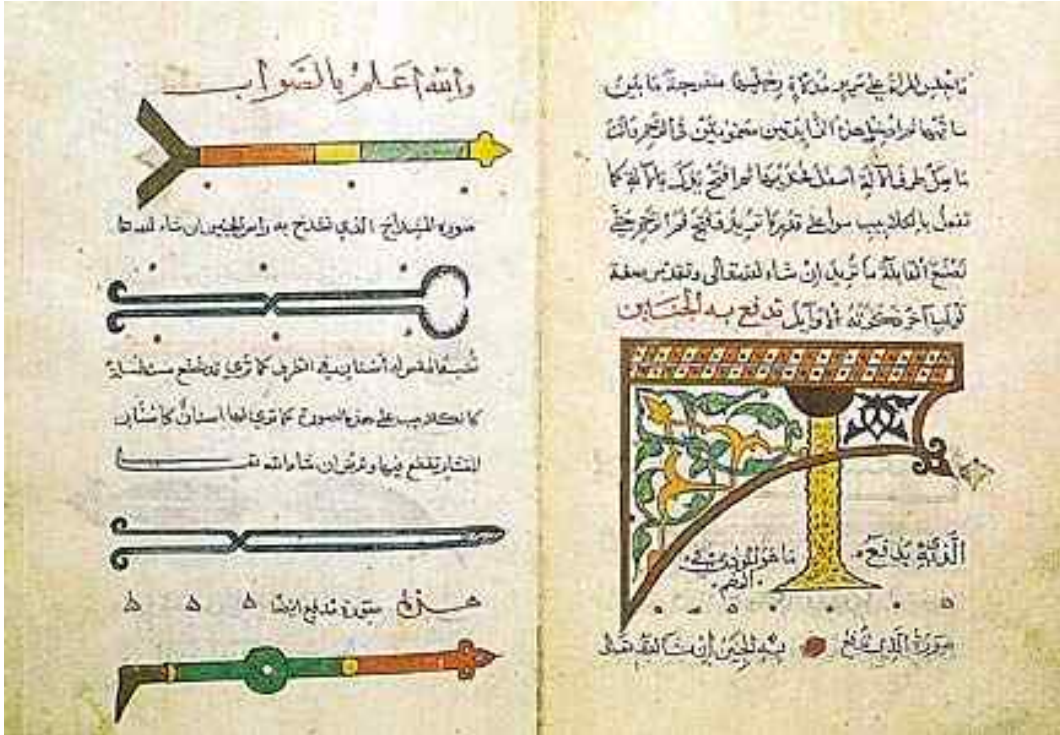 تجلس المراة على سرير مدلاة رجليها منفرجة ما بين
ساقيها ثم ادخل هذه الزايدتين مضمومتين في الرحم وانت
ماسك طرف الآلة اسفل عند فخذيها ثم افتح يدك بالآلة كما
تفعل بالكلاليب سوا على قدر ما تريد فتح فم الرحم حتى
تصنع القابلة ما تريد إن شاء الله تعالى وتقدس صفة
لولب آخر ذكرته الاوايل تدفع به الجنين
الذي يدفع ما هو الموذي في
الفم
صورة الذي يدفع به الجنين إن شا الله تعالى
والله اعلم بالصواب
صورة المشداخ الذي تشدخ به راس الجنين ان شاء الله تعالى
تشبه المقص له أسنان في الطرف كما ترى وقد تصنع مستطيلة
كالكلاليب على هذه الصورة كما ترى لها اسنان كاسنان
المنشار يقطع بها وترض ان شاء الله تعا
هذه صورة مدفع ايضا